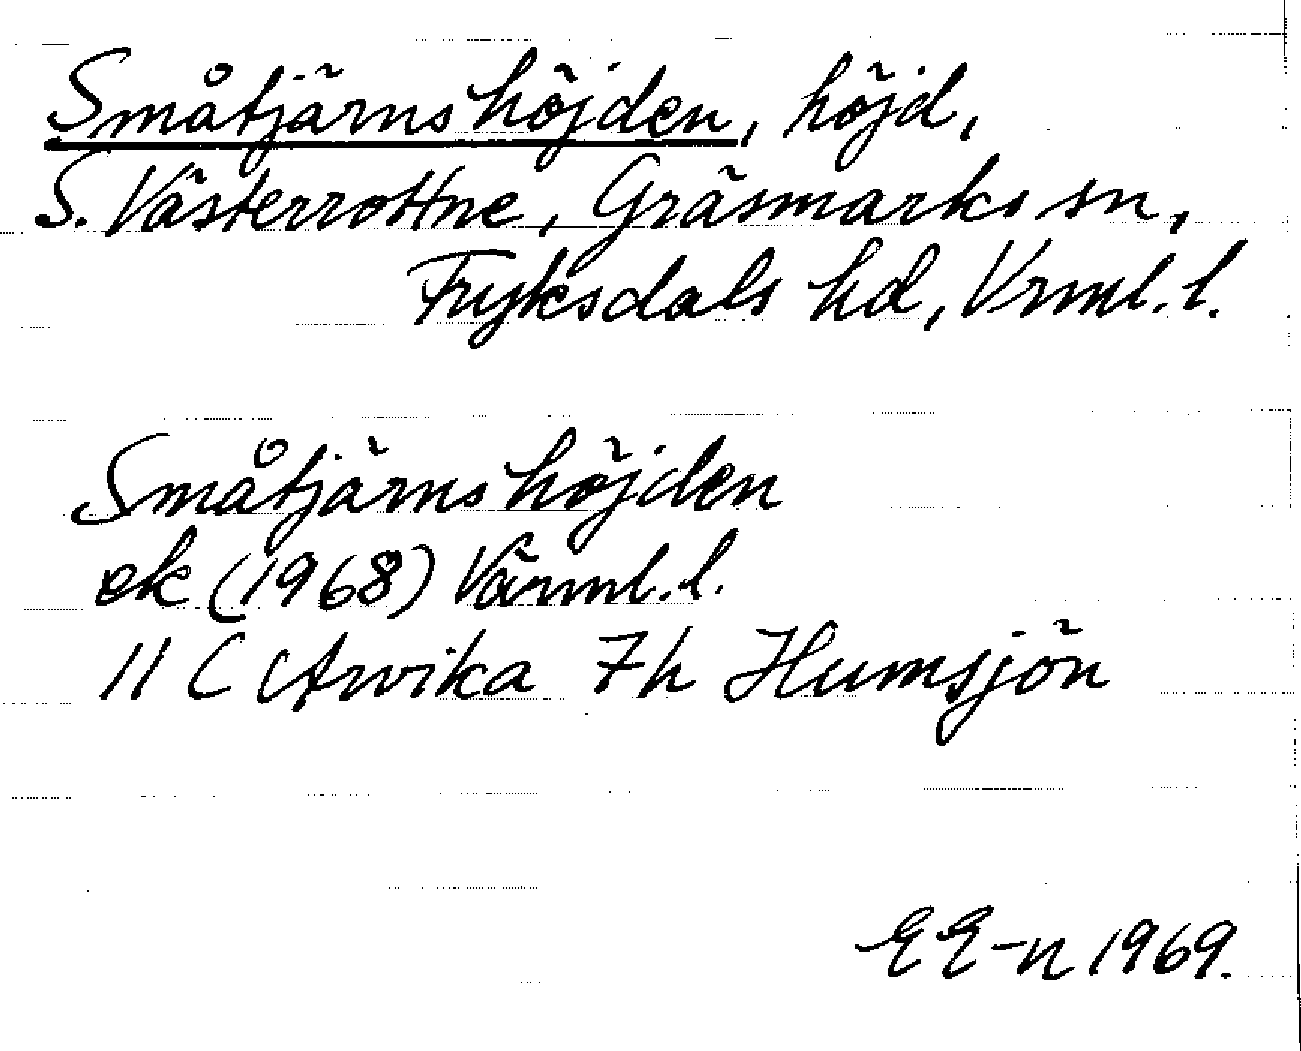 Småtjärnshöjden, höjd,
S. Västerrottne, Gräsmarks sn,
Fryksdals hd, Vrml. l.
Småtjärnshöjden
ek (1968) Värml. l.
11 C Arvika 7h Humsjön
EE-n 1969.